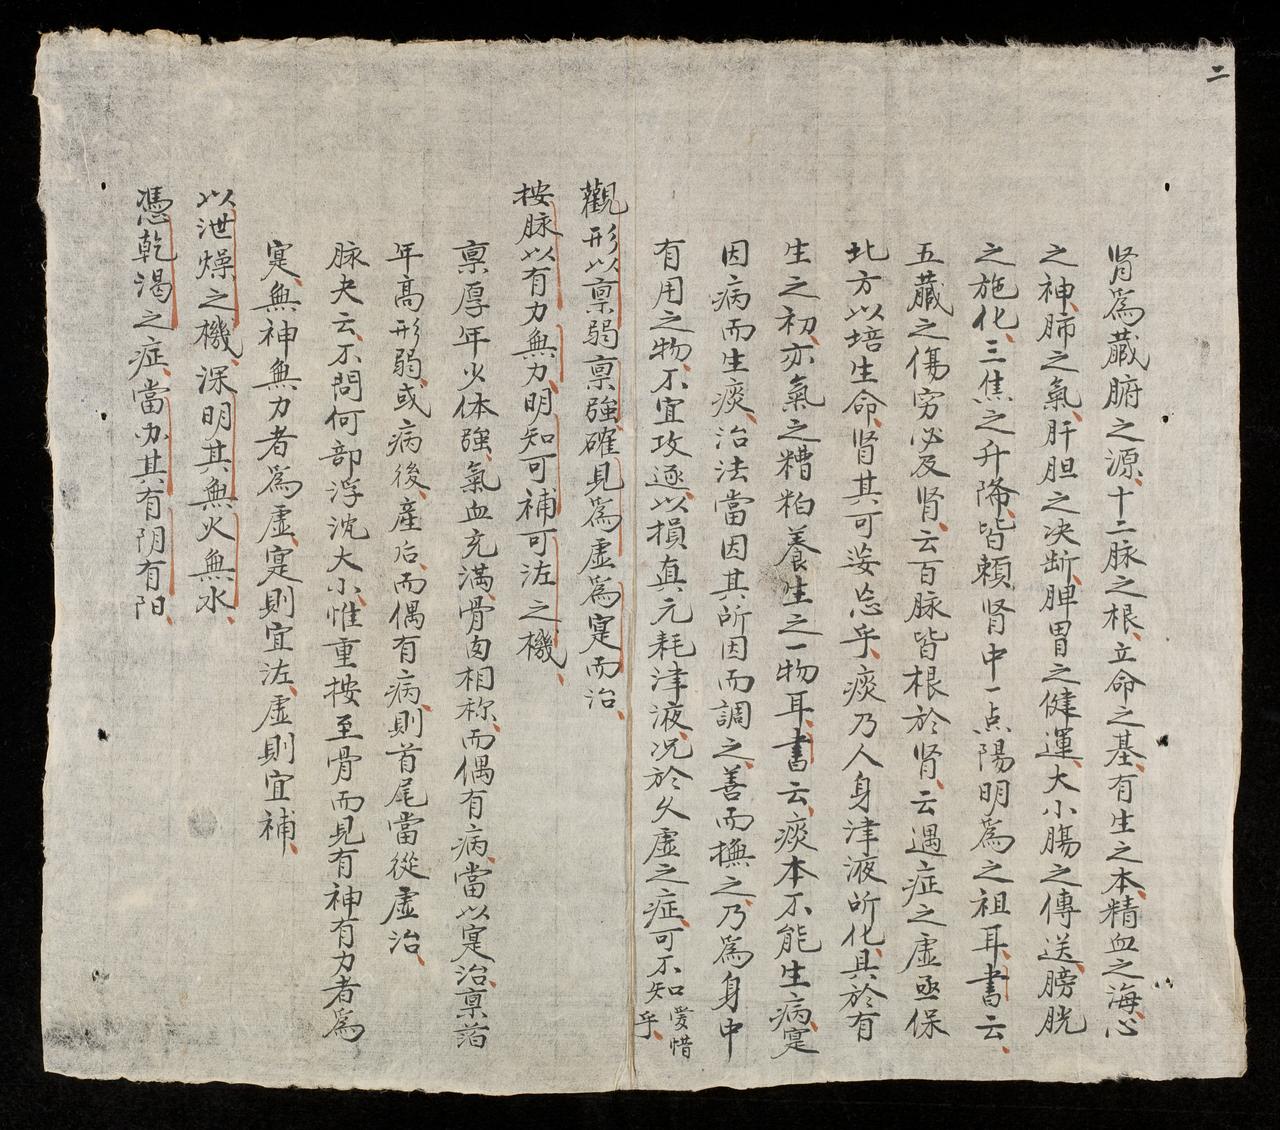 二
肾爲藏腑之源十二脉之根立命之基有生之本精血之海心
之神肺之氣肝胆之决断脾胃之健運大小膓之傳送膀胱
之施化三焦之升降皆頼肾中一点陽明爲之祖耳書云
五藏之傷穷必及肾云百脉皆根於肾云遇症之虚亟保
北方以培生命肾其可妄忩乎痰乃人身津液所化具於有
生之初亦氣之糟粕養生之一物耳書云痰本不能生病寔
因病而生痰治法當因其所因而調之善而撫之乃爲身中
有用之物不宜攻逐以損真元耗津液况於久虚之症可不知愛惜乎
觀形以禀弱禀強確見爲虚爲寔而治
按脉以有力無力明知可補可泻之機
禀厚年少体強氣血充满骨肉相称而偶有病當以寔治禀萡
年高形弱或病後產后而偶有病則首尾當從虚治
脉夬云不問何部浮沈大小惟重按至骨而見有神有力者爲
寔無神無力者爲虚寔則宜泻虚則宜補
以泄燥之機深明其無火無水
憑乾渴之症當办其有阴有阳